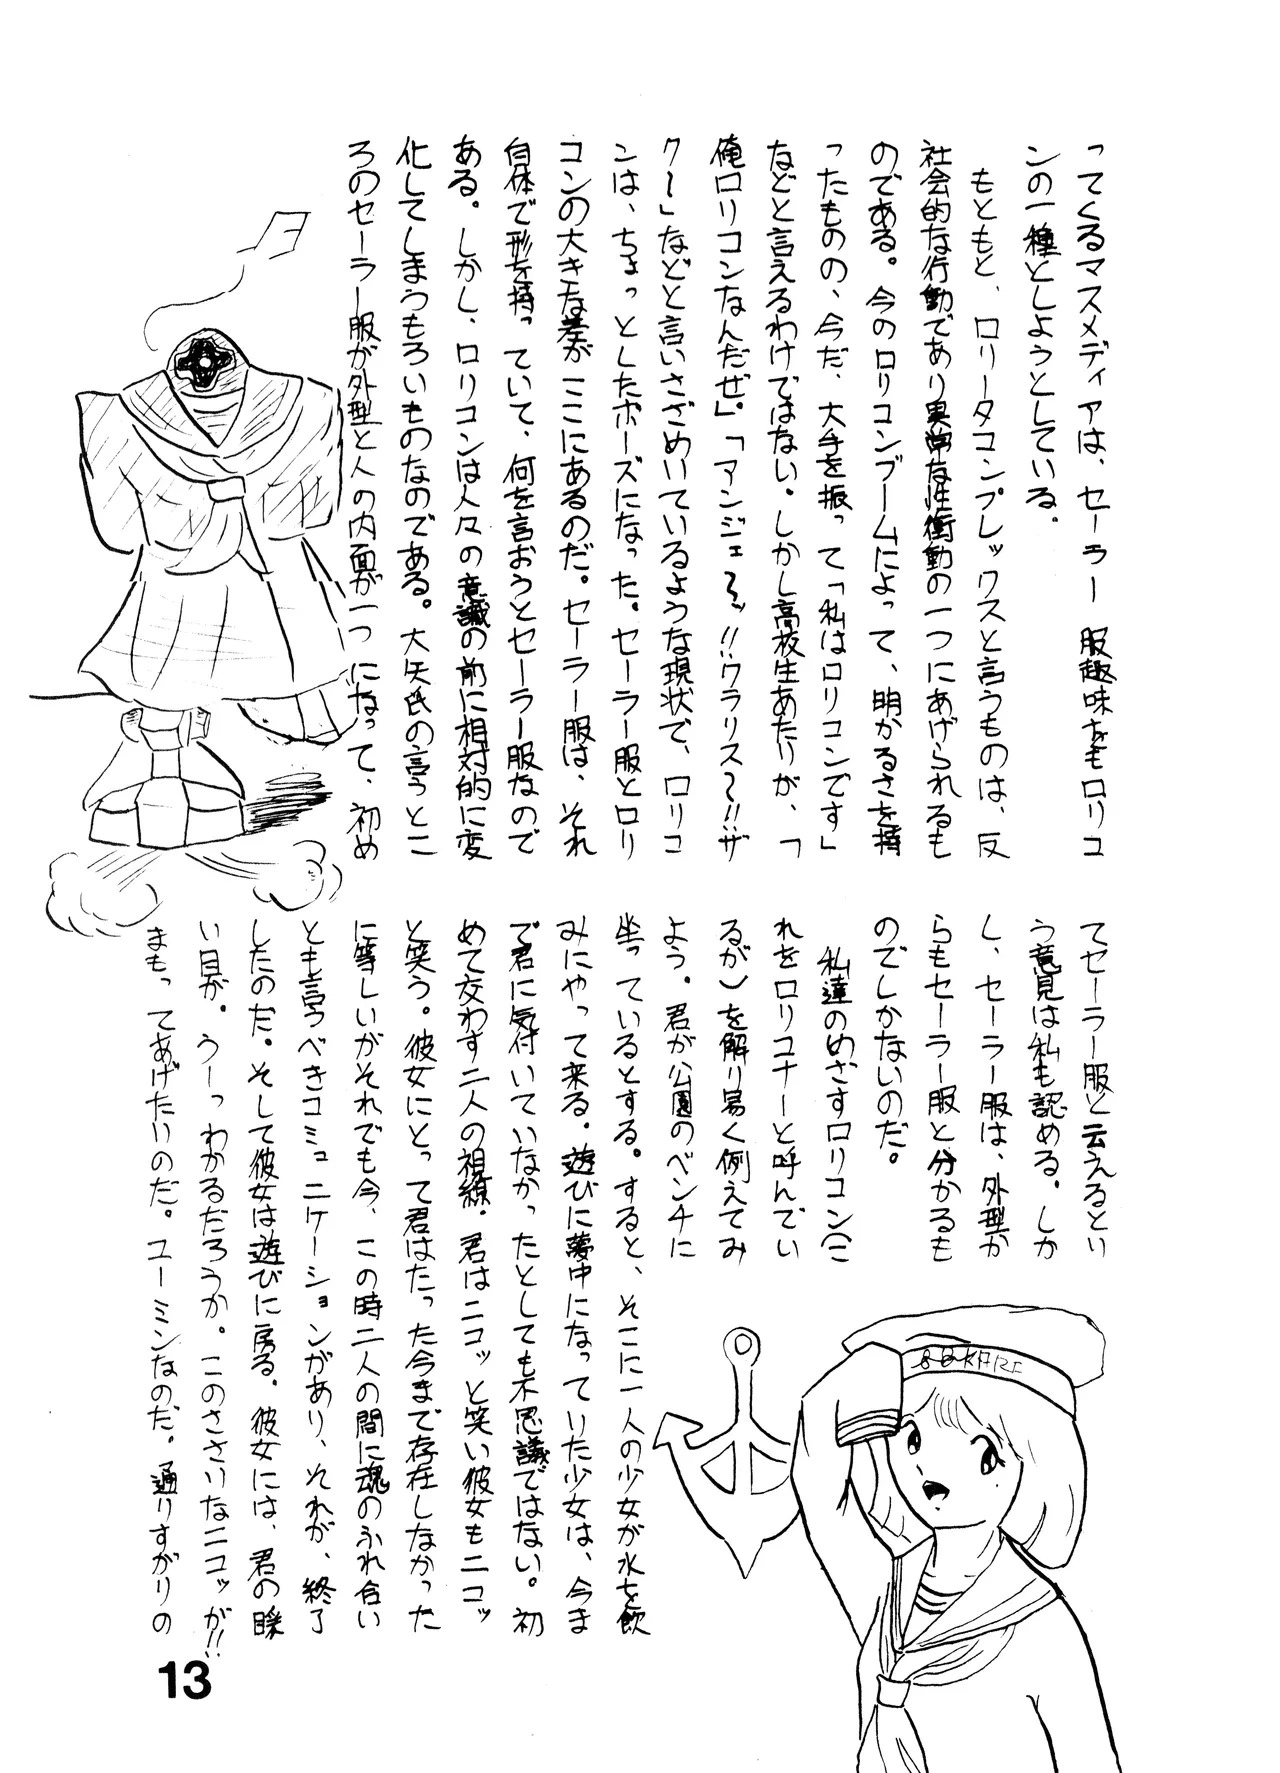 ってくるマスメディアは、セーラー服趣味をもロリコ
ンの一種としようとしている。
もともと、ロリータコンプレックスと言うものは、反
社会的な行動であり異常な性衝動の一つにあげられるも
のである。今のロリコンブームによって、明かるさを持
ったものの、今だ、大手を振って「私はロリコンです」
などと言えるわけではない。しかし高校生あたりが、「
俺ロリコンなんだぜ」「アンジェ〜ッ!!クラリス〜!!ザ
ク〜」などと言いさざめいているような現状で、ロリコ
ンは、ちょっとしたポーズになった。セーラー服とロリ
コンの大きな差がここにあるのだ。セーラー服は、それ
自体で形を持っていて、何を言おうとセーラー服なので
ある。しかし、ロリコンは人々の意識の前に相対的に変
化してしまうもろいものなのである。大矢氏の言うとこ
ろのセーラー服が外型と人の内面が一つになって、初め
てセーラー服と云えるとい
う意見は私も認める。しか
し、セーラー服は、外型か
らもセーラー服と分かるも
のでしかないのだ。
私達のめざすロリコン(こ
れをロリコナーと呼んでい
るが)を解り易く例えてみ
よう。君が公園のベンチに
坐っているとする。すると、そこに一人の少女が水を飲
みにやって来る。遊びに夢中になっていた少女は、今ま
で君に気付いていなかったとしても不思議ではない。初
めて交わす二人の視線。君はニコッと笑い彼女もニコッ
と笑う。彼女にとって君はたった今まで存在しなかった
に等しいがそれでも今、この時二人の間に魂のふれ合い
とも言うべきコミュニケーションがあり、それが、終了
したのだ。そして彼女は遊びに戻る。彼女には、君の瞳
い目が。うーっわかるだろうか。このささいなニコッが!!
まもってあげたいのだ。ユーミンなのだ。通りすがりの
13